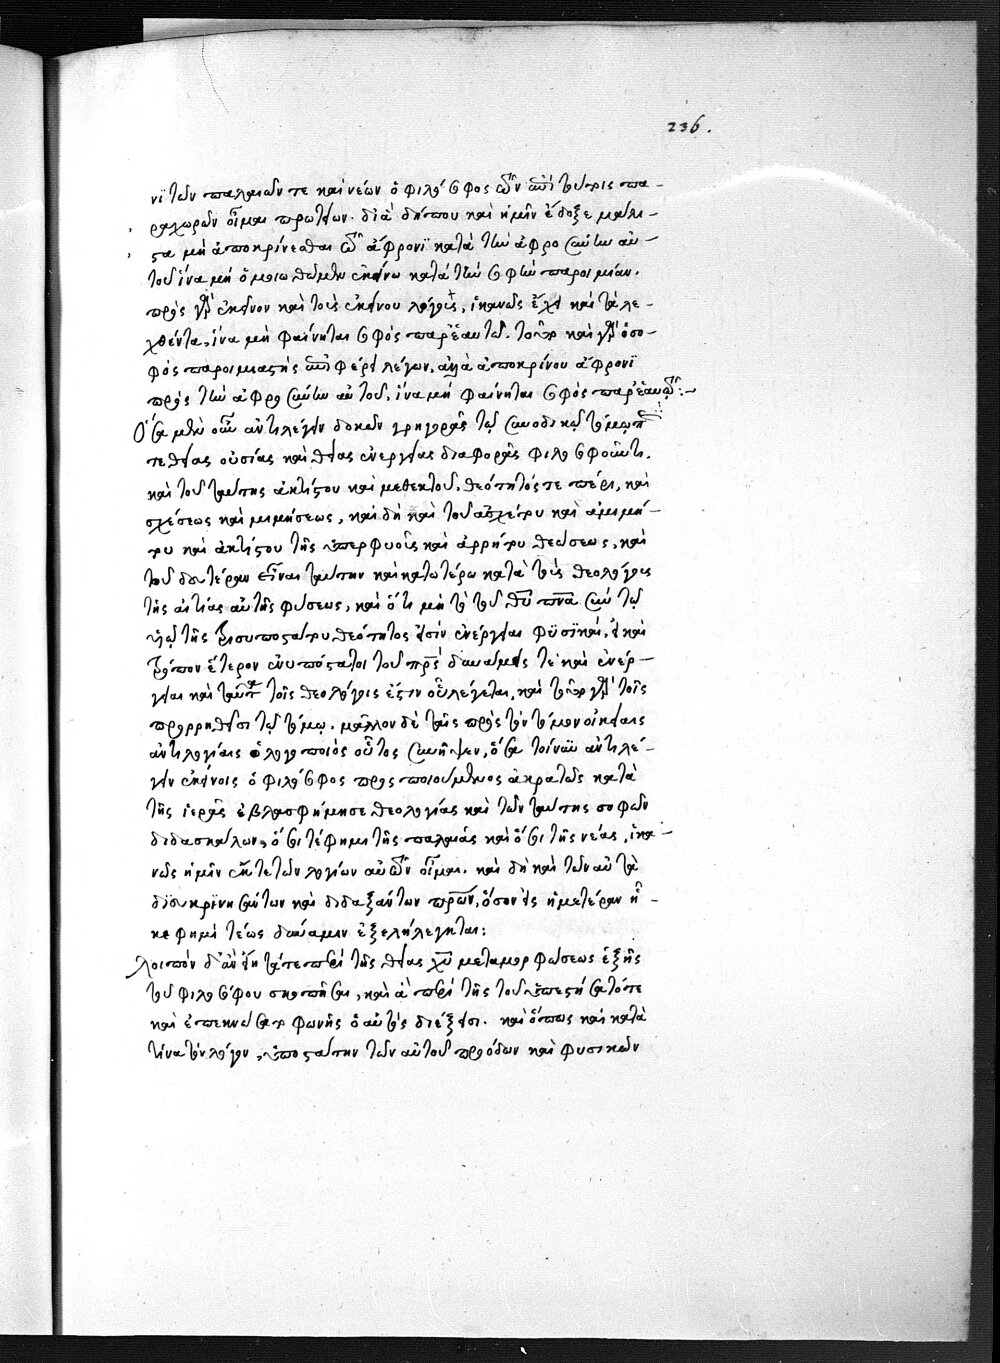 236.
νϊ τῶν παλαιῶν τε καὶ νέων ὁ φιλόσοφος ὢν τούτοις πα-
ραχωρῶν οἶμαι πρωτείων. διὰ δήπου καὶ ἡμῖν ἔδοξε μάλι-
στα μὴ ἀποκρίνεσθαι τῶ ἄφρονϊ κατὰ τὴν ἀφροσύνην αὐ-
τοῦ ἵνα μὴ ὁμοιωθῶμεν ἐκείνω κατὰ τὴν σοφὴν παροιμίαν.
πρὸς γὰρ ἐκεῖνον καὶ τοὺς ἐκείνου λόγους, ἱκανῶς ἔχει καὶ τὰ λε-
χθέντα, ἵνα μὴ φαίνηται σοφὸς παρ' ἑαυτῶ. τοῦτο καὶ γὰρ ὁ σο-
φὸς παροιμιαστὴς ἐπιφέρει λέγων, ἀλλὰ ἀποκρίνου ἄφρονϊ
πρὸς τὴν ἀφροσύνην αὐτοῦ, ἵνα μὴ φαίνηται σοφὸς παρ' ἑαυτῶ:-
Ὅσα μὲν οὖν ἀντιλέγειν δοκῶν γρηγορᾶς τῶ συνοδικῶ τόμω περὶ
τε θείας οὐσίας καὶ θείας ἐνεργείας διαφορᾶς φιλοσοφοῦντι.
καὶ τοῦ ταύτης ἀκτίστου καὶ μεθεκτοῦ. θεότητός τε πέρι, καὶ
σχέσεως καὶ μιμήσεως, καὶ δὴ καὶ τοῦ ἀσχέτου καὶ ἀμιμή-
του καὶ ἀκτίστου τῆς ὑπερφυοῦς καὶ ἀρρήτου θεώσεως, καὶ
τοῦ δευτέραν εἶναι ταύτην καὶ κατωτέρω κατὰ τοὺς θεολόγους
τῆς αἰτίας αὐτῆς φύσεως, καὶ ὅτι μὴ τὸ τοῦ θυ πνα σὺν τῶ
υἱῶ τῆς τρισυποστάτου θεότητος εἰσὶν ἐνέργειαι φϋσϊκαί, εἰ καὶ
τρόπον ἕτερον ἐνυπόστατοι τοῦ πρς δυνάμεις τὲ καὶ ἐνέρ-
γειαι καὶ ταῦτα τοῖς θεολόγοις ἔστιν οὗ λέγεται, καὶ τοῦτο γὰρ τοῖς
προρρηθεῖσι τῶ τόμω. μᾶλλον δὲ ταῖς πρὸς τὸν τόμον οἰκείαις
ἀντιλογίαις ὁ λογοποιὸς οὗτος συνῆψεν, ὅσα τοίνυν ἀντιλέ-
γειν ἐκείνοις ὁ φιλόσοφος προσποιούμενος ἀκρατῶς κατὰ
τῆς ἱερᾶς ἐβλασφήμησε θεολογίας καὶ τῶν ταύτης σοφῶν
διδασκάλων, ὅσοι τέ φημι τῆς παλαιᾶς καὶ ὅσοι τῆς νέας, ἱκα-
νῶς ἡμῖν ἔκ τε τῶν λογίων αὐτῶν οἶμαι. καὶ δὴ καὶ τῶν αὐτὰ
διευκρινησάντων καὶ διδαξάντων πρων, ὅσον εἰς ἡμετέραν ἧ-
κε φημὶ τέως δύναμιν ἐξελήλεγκται:
Λοιπὸν δ' ἂν εἴη τά τε περὶ τῆς θείας χυ μεταμορφώσεως ἑξῆς
τοῦ φιλοσόφου σκοπῆσαι, καὶ ἃ περὶ τῆς τοῦ
καὶ φωνῆς ὁ αὐτὸς διέξεισι. καὶ ὅπως καὶ κατὰ
τίνα τὸν λόγον, ὑποστάτην τῶν αὐτοῦ προόδων καὶ φυσικῶν